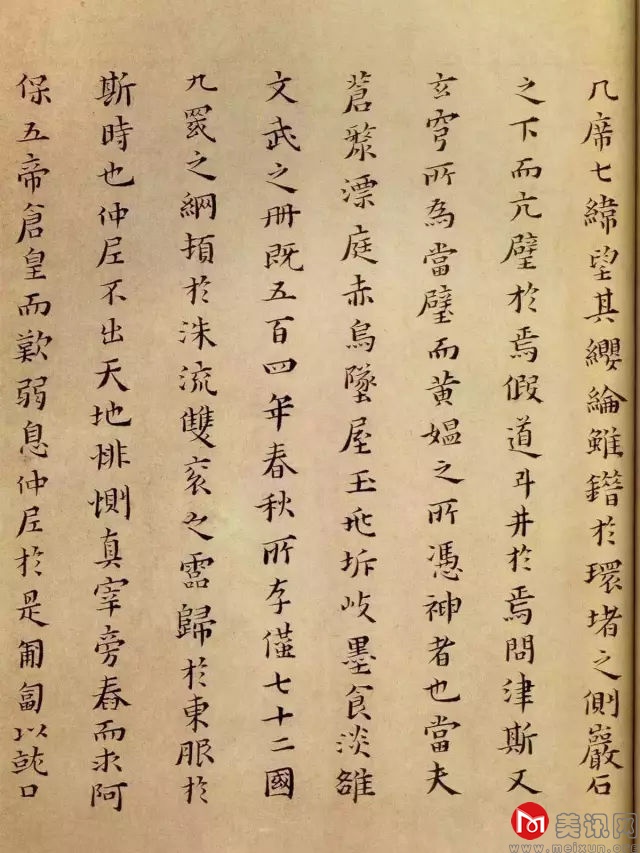 几席七緯望其纓綸雖於環堵之側巖石
之下而亢壁於焉假道斗井於焉問津斯又
玄穹所為當璧而黃媼之所憑神者也當夫
蒼漦漂庭赤烏墜屋玉坼岐墨食淡雒
文武之冊既五百四年春秋所存僅七十二國
九罭之綱頓於洙流雙袞之靈歸於東服於
斯時也仲尼不出天地悱惻真宰旁舂而求阿
保五帝倉皇而歎弱息仲尼於是匍匐以就口
美讯网